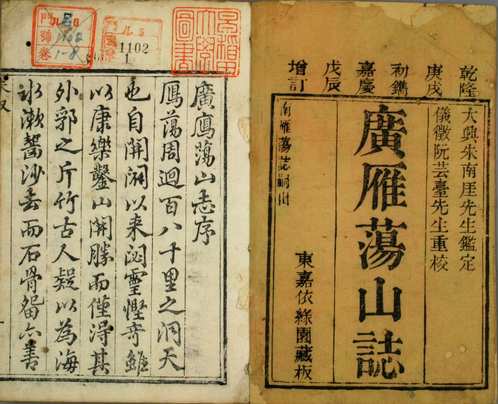 乾隆
庚戌
初鐫
嘉慶
戊辰
增訂
大興朱南厓先生鑑定
儀徵阮芸臺先生重校
廣雁蕩山誌
東嘉依綠園藏板
南雁蕩誌嗣出
廣鴈蕩山志序
鴈蕩周迴百八十里之洞天
也自開闢以來泌靈慳奇雖
以康樂鑿山開勝而僅得其
外郭之斤竹古人疑以為海
水漱齧沙去而石骨留亦善
1102
1